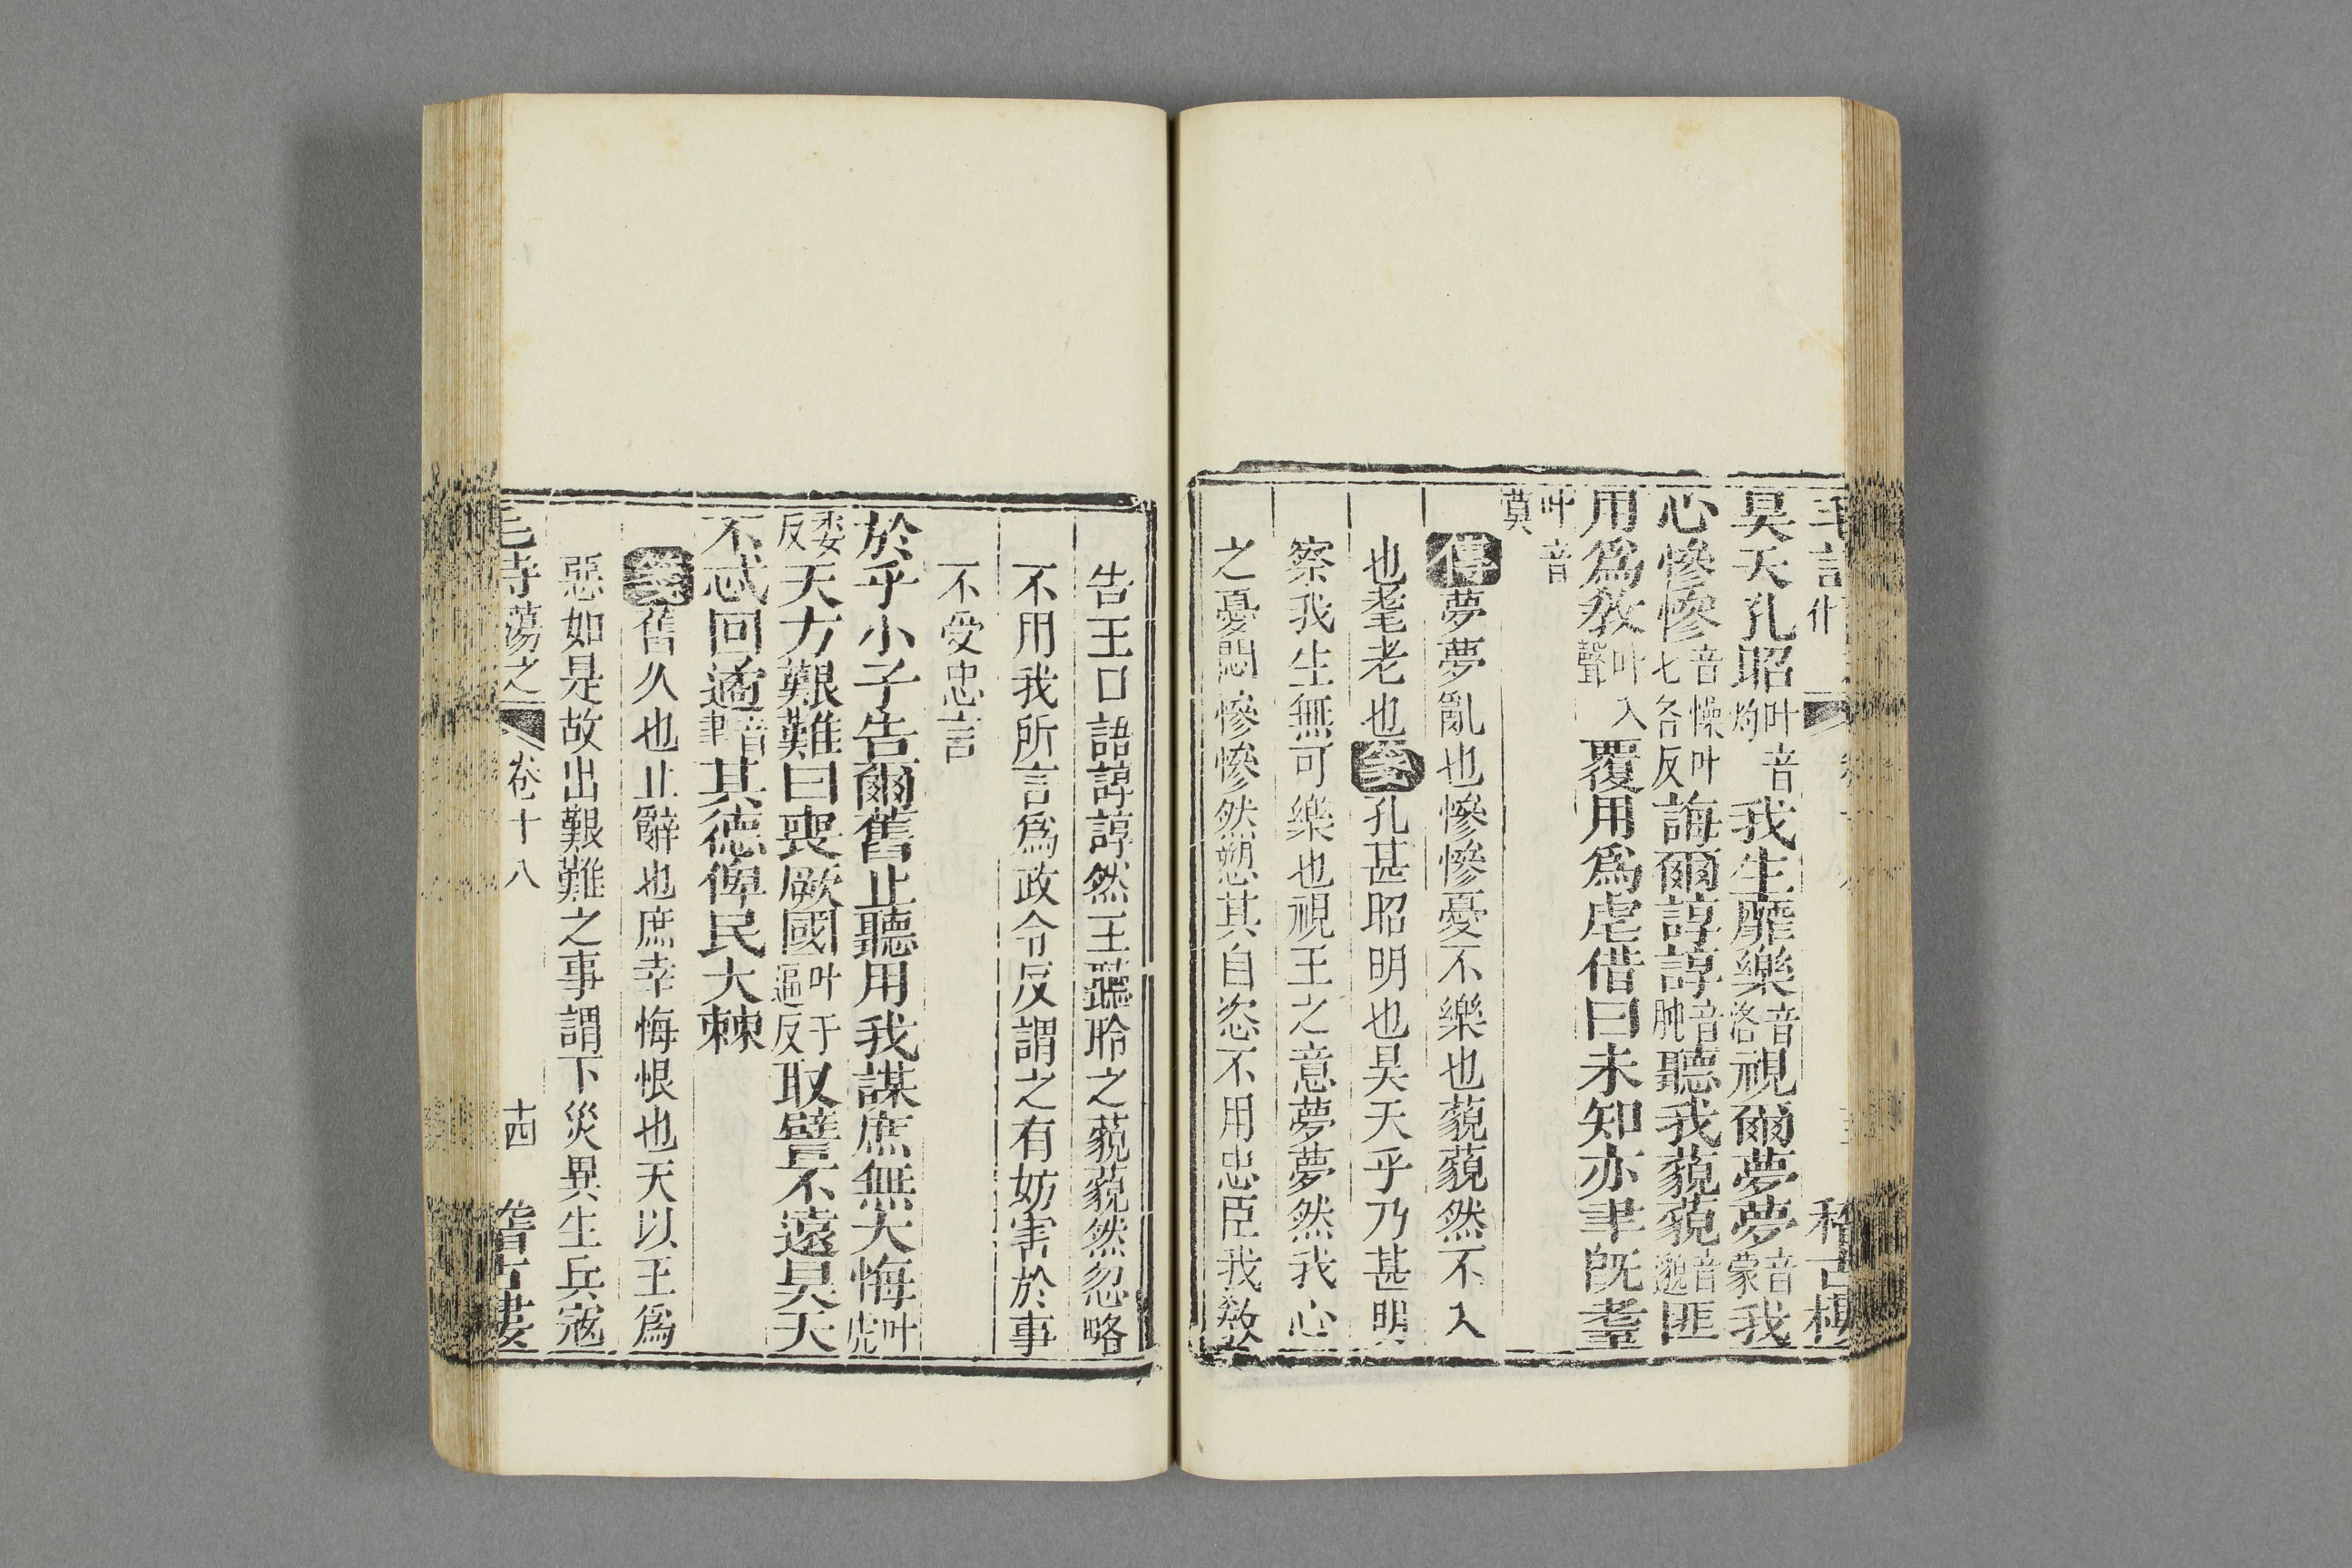 昊天孔昭叶音灼我生靡樂音洛視爾夢夢音蒙我
心慘慘音懆叶七各反誨爾諄諄音肫聽我藐藐音邈匪
用爲敎叶入聲覆用爲虐借曰未知亦聿旣耋
叶音莫
傳夢夢亂也慘慘憂不樂也藐藐然不入
也耄老也箋孔甚昭明也昊天乎乃甚明
察我生無可樂也視王之意夢夢然我心
之憂悶慘慘然愬其自恣不用忠臣我敎
告王口語諄諄然王聽聆之藐藐然忽略
不用我所言爲政令反謂之有妨害於事
不受忠言
於乎小子告爾舊止聽用我謀庶無大悔叶虎
委反天方艱難曰喪厥國叶于逼反取譬不遠昊天
不忒回遹音聿其德俾民大棘
箋舊久也止辭也庶幸悔恨也天以王爲
惡如是故出艱難之事謂下災異生兵寇
蕩之 卷十八 十四